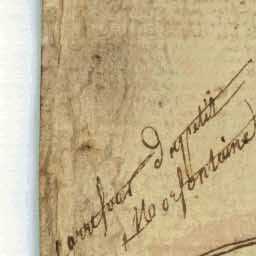 Carrefour du petit
Morfontaine